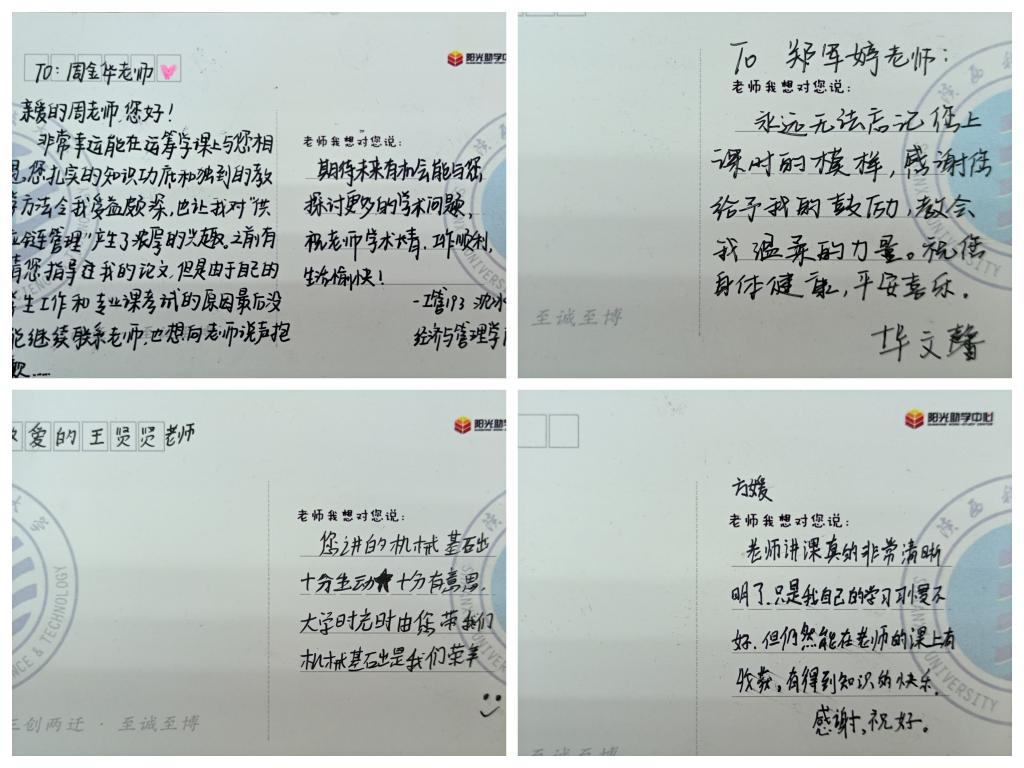 TO：周金华老师
亲爱的周老师,您好！
非常幸运能在运筹学课上与您相
您扎实的知识功底和独到的教
方法令我受益颇深,也让我对"供
链管理"产生了浓厚的兴趣。之前有
请您指导过我的论文,但是由于自己的
学生工作和专业课考试的原因最后没
能继续联系老师,也想向老师说声抱
歉……
阳光助学中心
老师我想对您说：
期待未来有机会能与您
探讨更多的学术问题。
祝老师学术大精、工作顺利,
生活愉快！
经济与管理学
UNIVERSITY
To 郑军婷老师：
老师我想对您说：
永远无法忘记您上
课时的模样，感谢您
给予我的鼓励，教会
我温柔的力量。祝您
身体健康，平安喜乐。
华文馨
至诚至博
爱的王贤贤老师
阳光助学中
老师我想对您说：
您讲的机械基石出
十分生动 十分有意思,
大学时光时由您带我们
机械基石出是我们荣幸
ENCE & TECHNOLOGY
三创两迁 · 至诚至博
阳光助学中心
方媛
老师我想对您说：
老师讲课真的非常清晰
明了,只是我自己的学习习惯不
好,但仍然能在老师的课上有
收获,有得到知识的快乐。
感谢,祝好。
陕西
UNIVERSITY
至诚至博